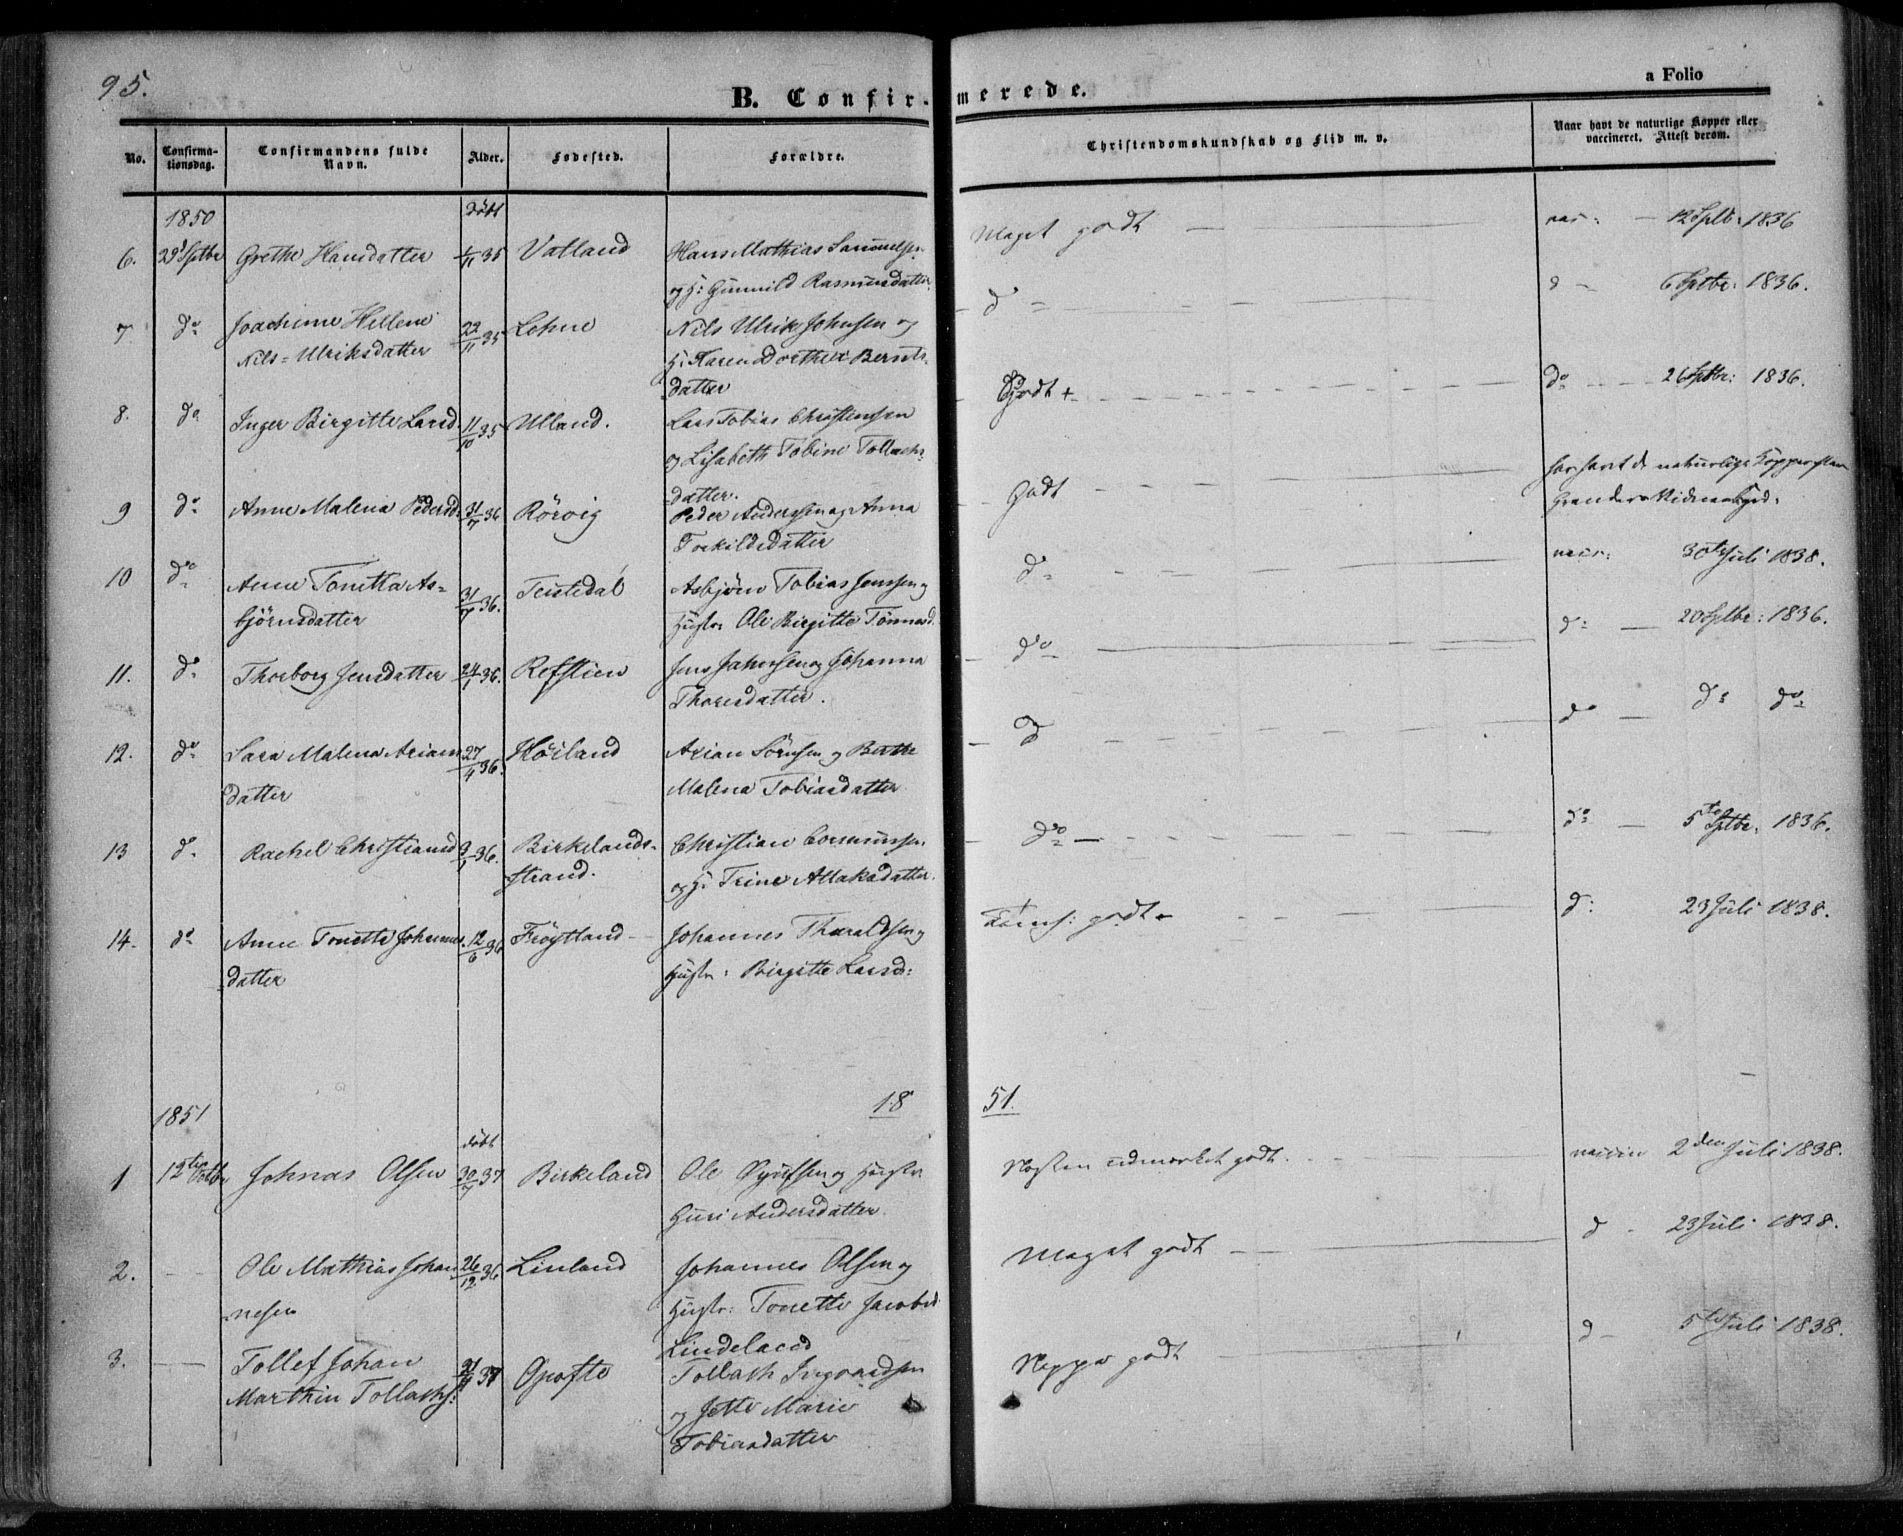 95.
B. Confirmerede.
a Folio
No.
Confirma-
tionsdag.
Confirmandens fulde
Navn.
Alder.
Fødested.
Forældre.
Christendomskundskab og Flid m. v.
Naar havt de naturlige Kopper eller
vaccineret. Attest derom.
1850
født
6. 29 Sptbr Grethe Hansdatter 1/11 35 Valland Hans Mathias Samuelsen
og H: Gunnild Rasmusdatter.
Maget godt — vac: — 12 Sptb: 1836
7 do Joachime Hellene 22/11 35 Lohne Nils Ulrik Johnsen og
Nils-Ulriksdatter H. Karen Dorthea Bernts-
datter
do d — 6 Sptbr: 1836.
8. do Inger Birgitte Larsd. 11/10 35 Ulland. Lars Tobias Christensen
og Lisabeth Tobine Tollachs-
datter.
Godt + do 26 Sptbr: 1836.
9 do Anne Malena Pedersd. 31/7 36 Rörvig Peder Andersen og Anna
Torkildsdatter
Godt har havt de naturlige Kopper
10 do Anne Tonetta As- 31/7 36. Teistedal Asbjörn Tobias Jenssen og
björnsdatter Hustr: Ole Birgitte Tönnesd.
do vacc: 30te Juli 1838.
11. do Thorborg Jensdatter 24/1 36. Refstien Jens Jahnsen og Johanna
Thoresdatter.
do d: — 20 Sptbr: 1836.
12. do Sara Malena Arians 27/4 36. Höiland Arian Sörnsen og Berthe
datter Malena Tobiasdatter
do do — do do
13 do Rachel Christiansd 3/1 36. Birkelands- Christian
strand. og H: Trine Atlaksdatter.
do — do — 5te Sptbr. 1836.
14. do Anne Tonette Johannes. 12/6 36 Fröytland Johannes Tharaldsen og
datter Hustr: Birgitte Larsd:
Temf: godt d: 23 Juli 1838.
1851
18 51.
født
1 12te Octbr Johnas Olsen 30/7 37 Birkeland Ole Sjursen og Hustr:
Guri Andersdatter.
Næsten udmærket godt. vaccin 2den Juli 1838.
2. — Ole Mathias Johan 26/12 36 Linland Johannes Olsen og
nesen Hustr: Tonette Jacobsd
Maget godt — d — 23 Juli 1838.
3. — Tollef Johan 37 Opofte Tollach Ingvardsen
Marthin Tollachs: og Jette Marie
Tobiasdatter
Neppe godt d — 5te Juli 1838.